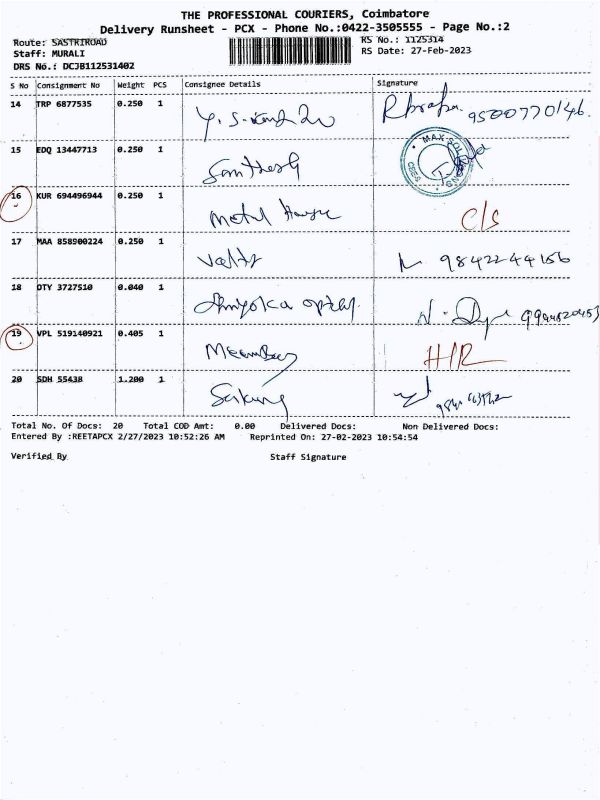 THE PROFESSIONAL COURIERS, Coimbatore
Delivery Runsheet - PCX - Phone No.:0422-3505555 - Page No.:2
Route: SASTRIROAD
RS No.: 1125314
Staff: MURALI
RS Date: 27-Feb-2023
DRS No.: DCJB112531402
S No Consignment No Weight PCS Consignee Details Signature
14 TRP 6877535 0.250 1 9500770146
15 EDQ 13447713 0.250 1 Santhosh MAX
16 KUR 694496944 0.250 1 Metal House C/S
17 MAA 858900224 0.250 1 9842244166
18 OTY 3727510 0.040 1
19 VPL 519140921 0.405 1 H/R
20 SDH 55438 1.200 1
Total No. Of Docs: 20 Total COD Amt: 0.00 Delivered Docs: Non Delivered Docs:
Entered By :REETAPCX 2/27/2023 10:52:26 AM Reprinted On: 27-02-2023 10:54:54
Verified By Staff Signature